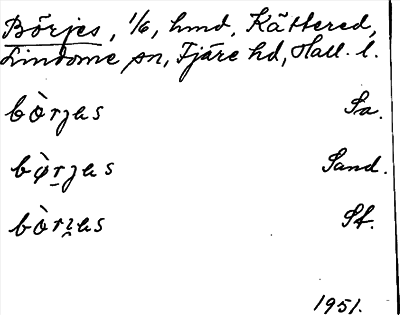 Börjes, 1/6, hmd, Kättered,
Lindome sn, Fjäre hd, Hall. l.
bòrjas Sa.
bø̀rjas Sand.
bòrjas Sf.
1951.